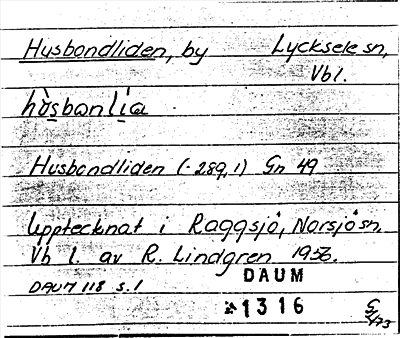 Husbondliden, by Lycksele sn,
Vbl.
hùsbonlía
Husbondliden (-289,1) Gn 49
Upptecknat i Raggsjö, Norsjö sn.
Vb l. av R. Lindgren 1956.
DAUM 118 s. 1
DAUM
1316